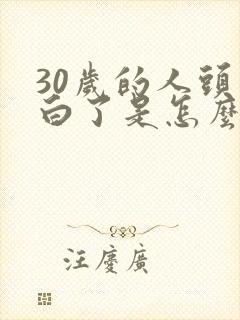 30歲的人頭
白了是怎麼
汪慶廣